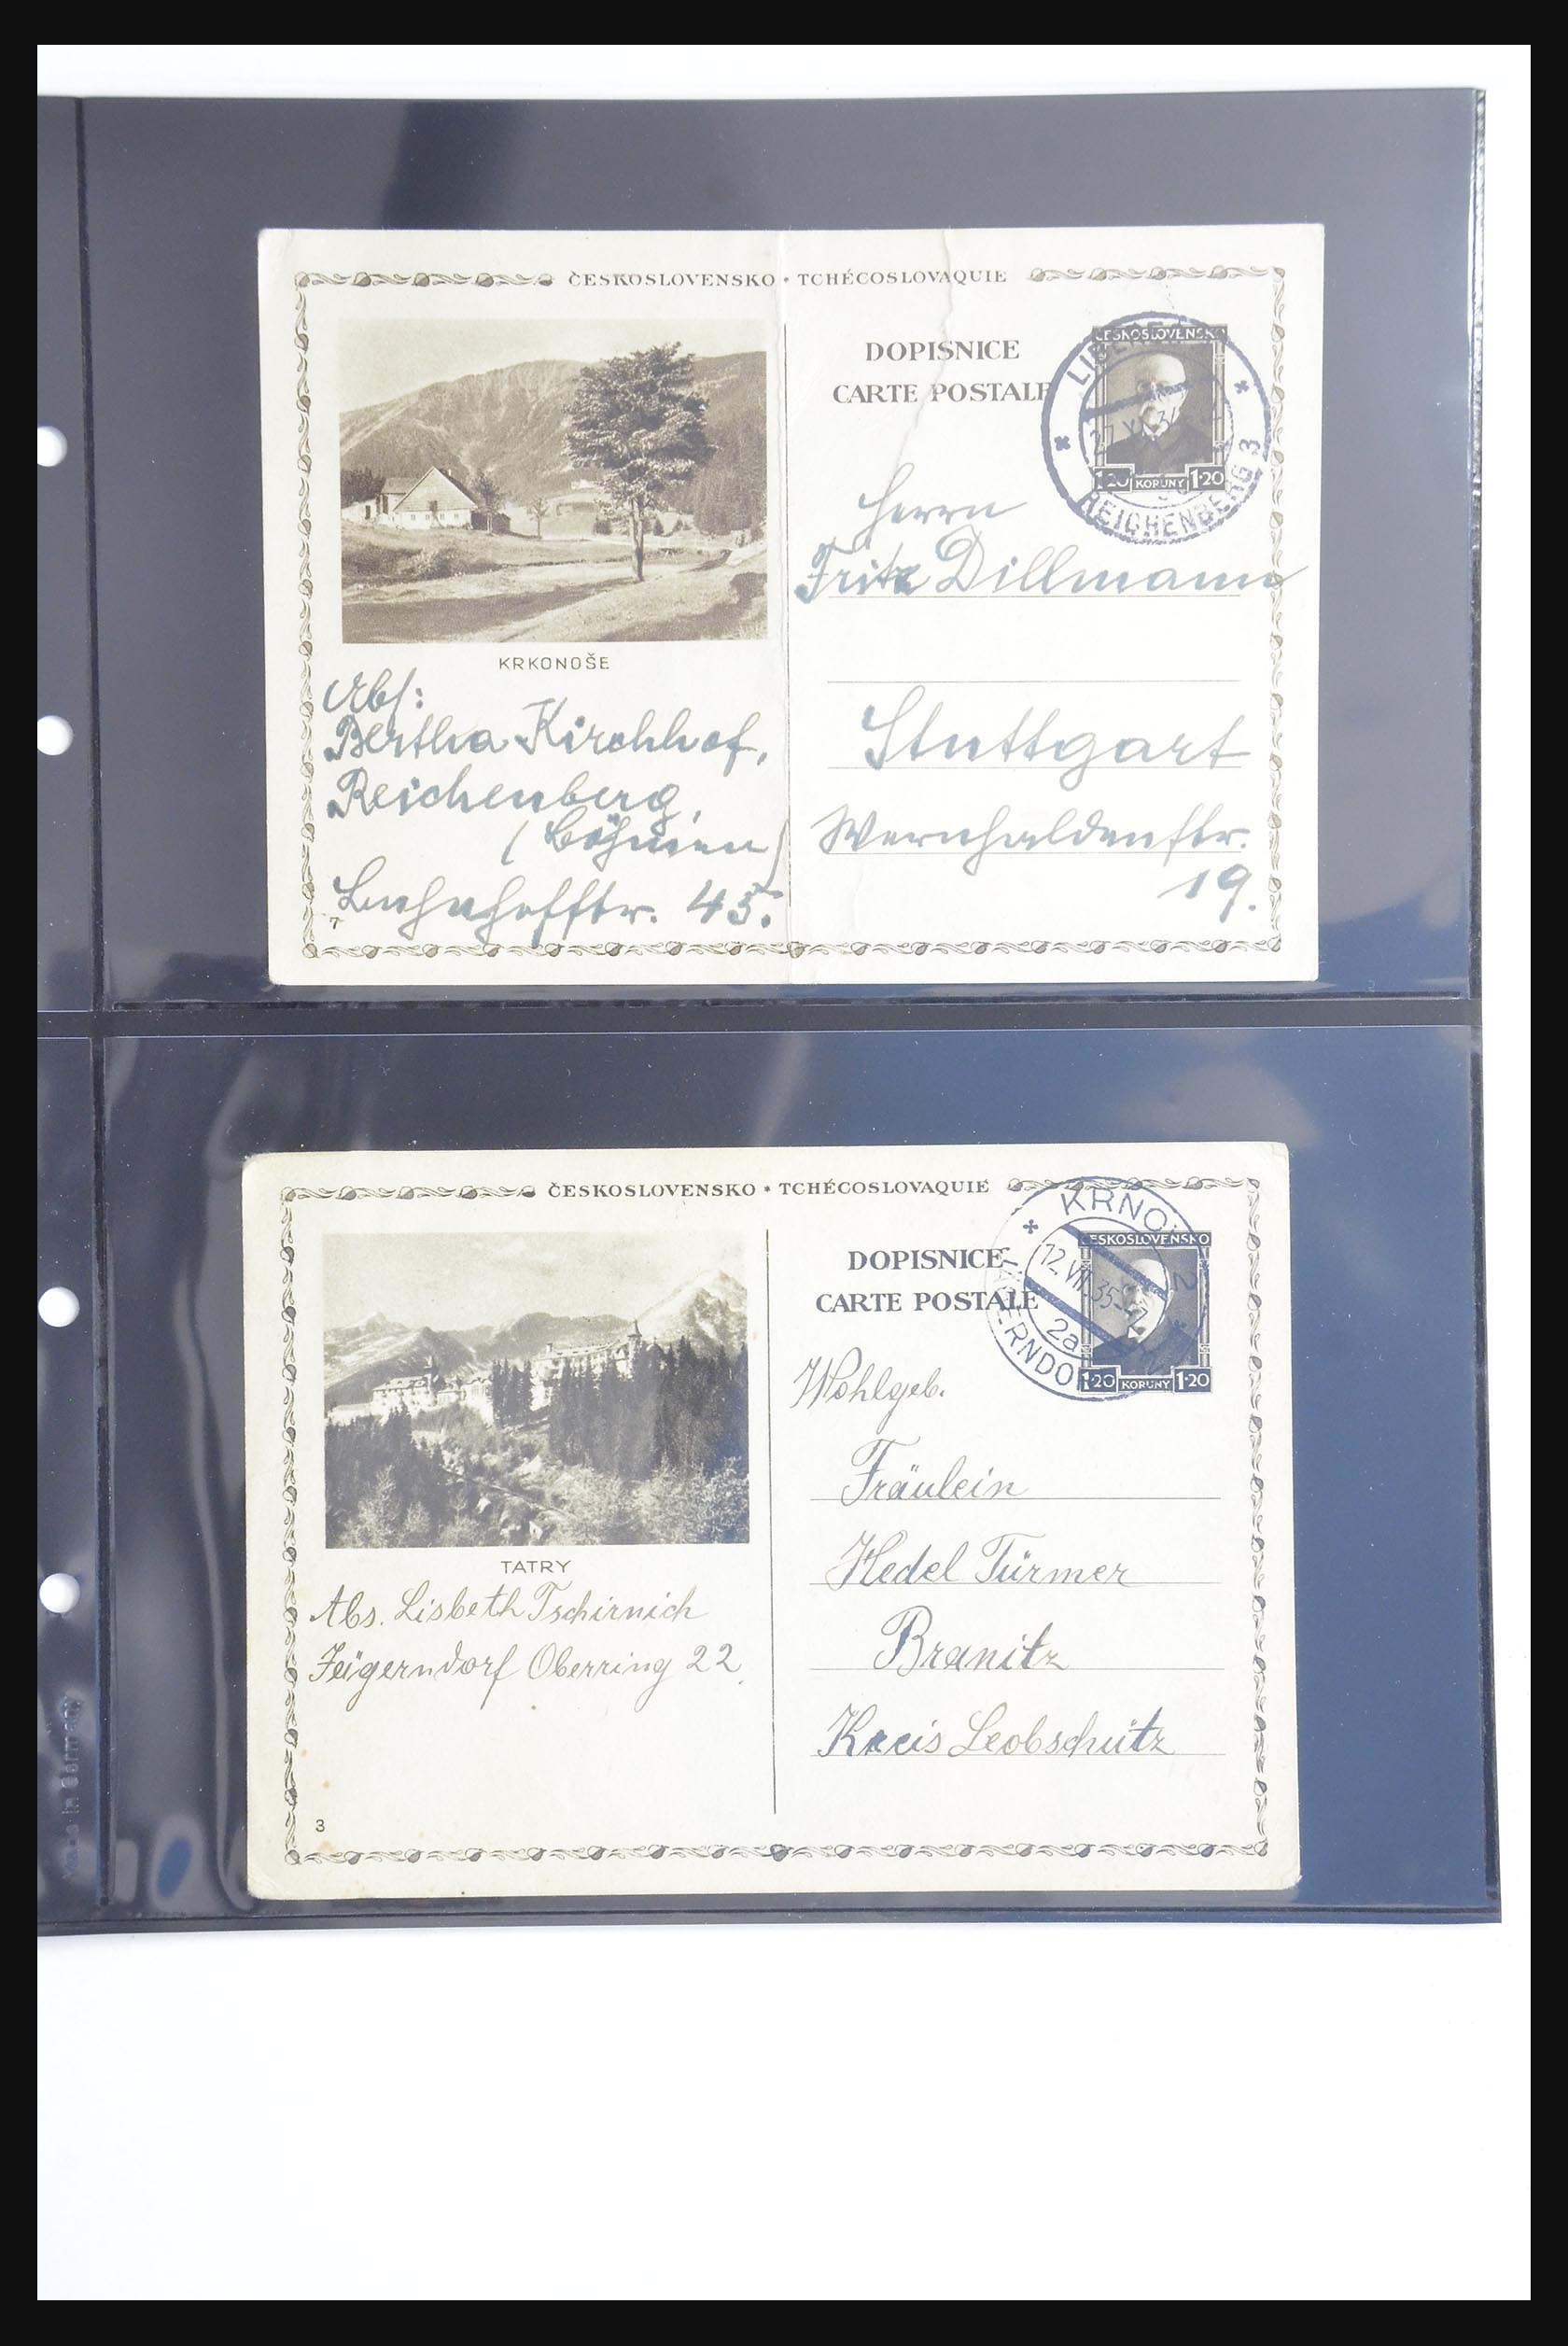 ČESKOSLOVENSKO • TCHÉCOSLOVAQUIE
DOPISNICE
CARTE POSTALE
ČESKOSLOVENSKO
1·20 KORUNY 1·20
REICHENBERG 3
KRKONOŠE
Abs:
Bertha Kirchhof,
Reichenberg,
(Böhmen)
Bahnhofstr. 45.
7
Herrn
Fritz Dillmann
Stuttgart
Wernhaldenstr.
19.
ČESKOSLOVENSKO • TCHÉCOSLOVAQUIE
DOPISNICE
CARTE POSTALE
ČESKOSLOVENSKO
1·20 KORUNY 1·20
KRNOV 2
12.VII.35
2a
TATRY
Abs. Lisbeth Tschirnich
Jägerndorf Oberring 22.
3
Wohlgeb.
Fräulein
Hedel Türmer
Branitz
Kreis Leobschütz
Made in Germany